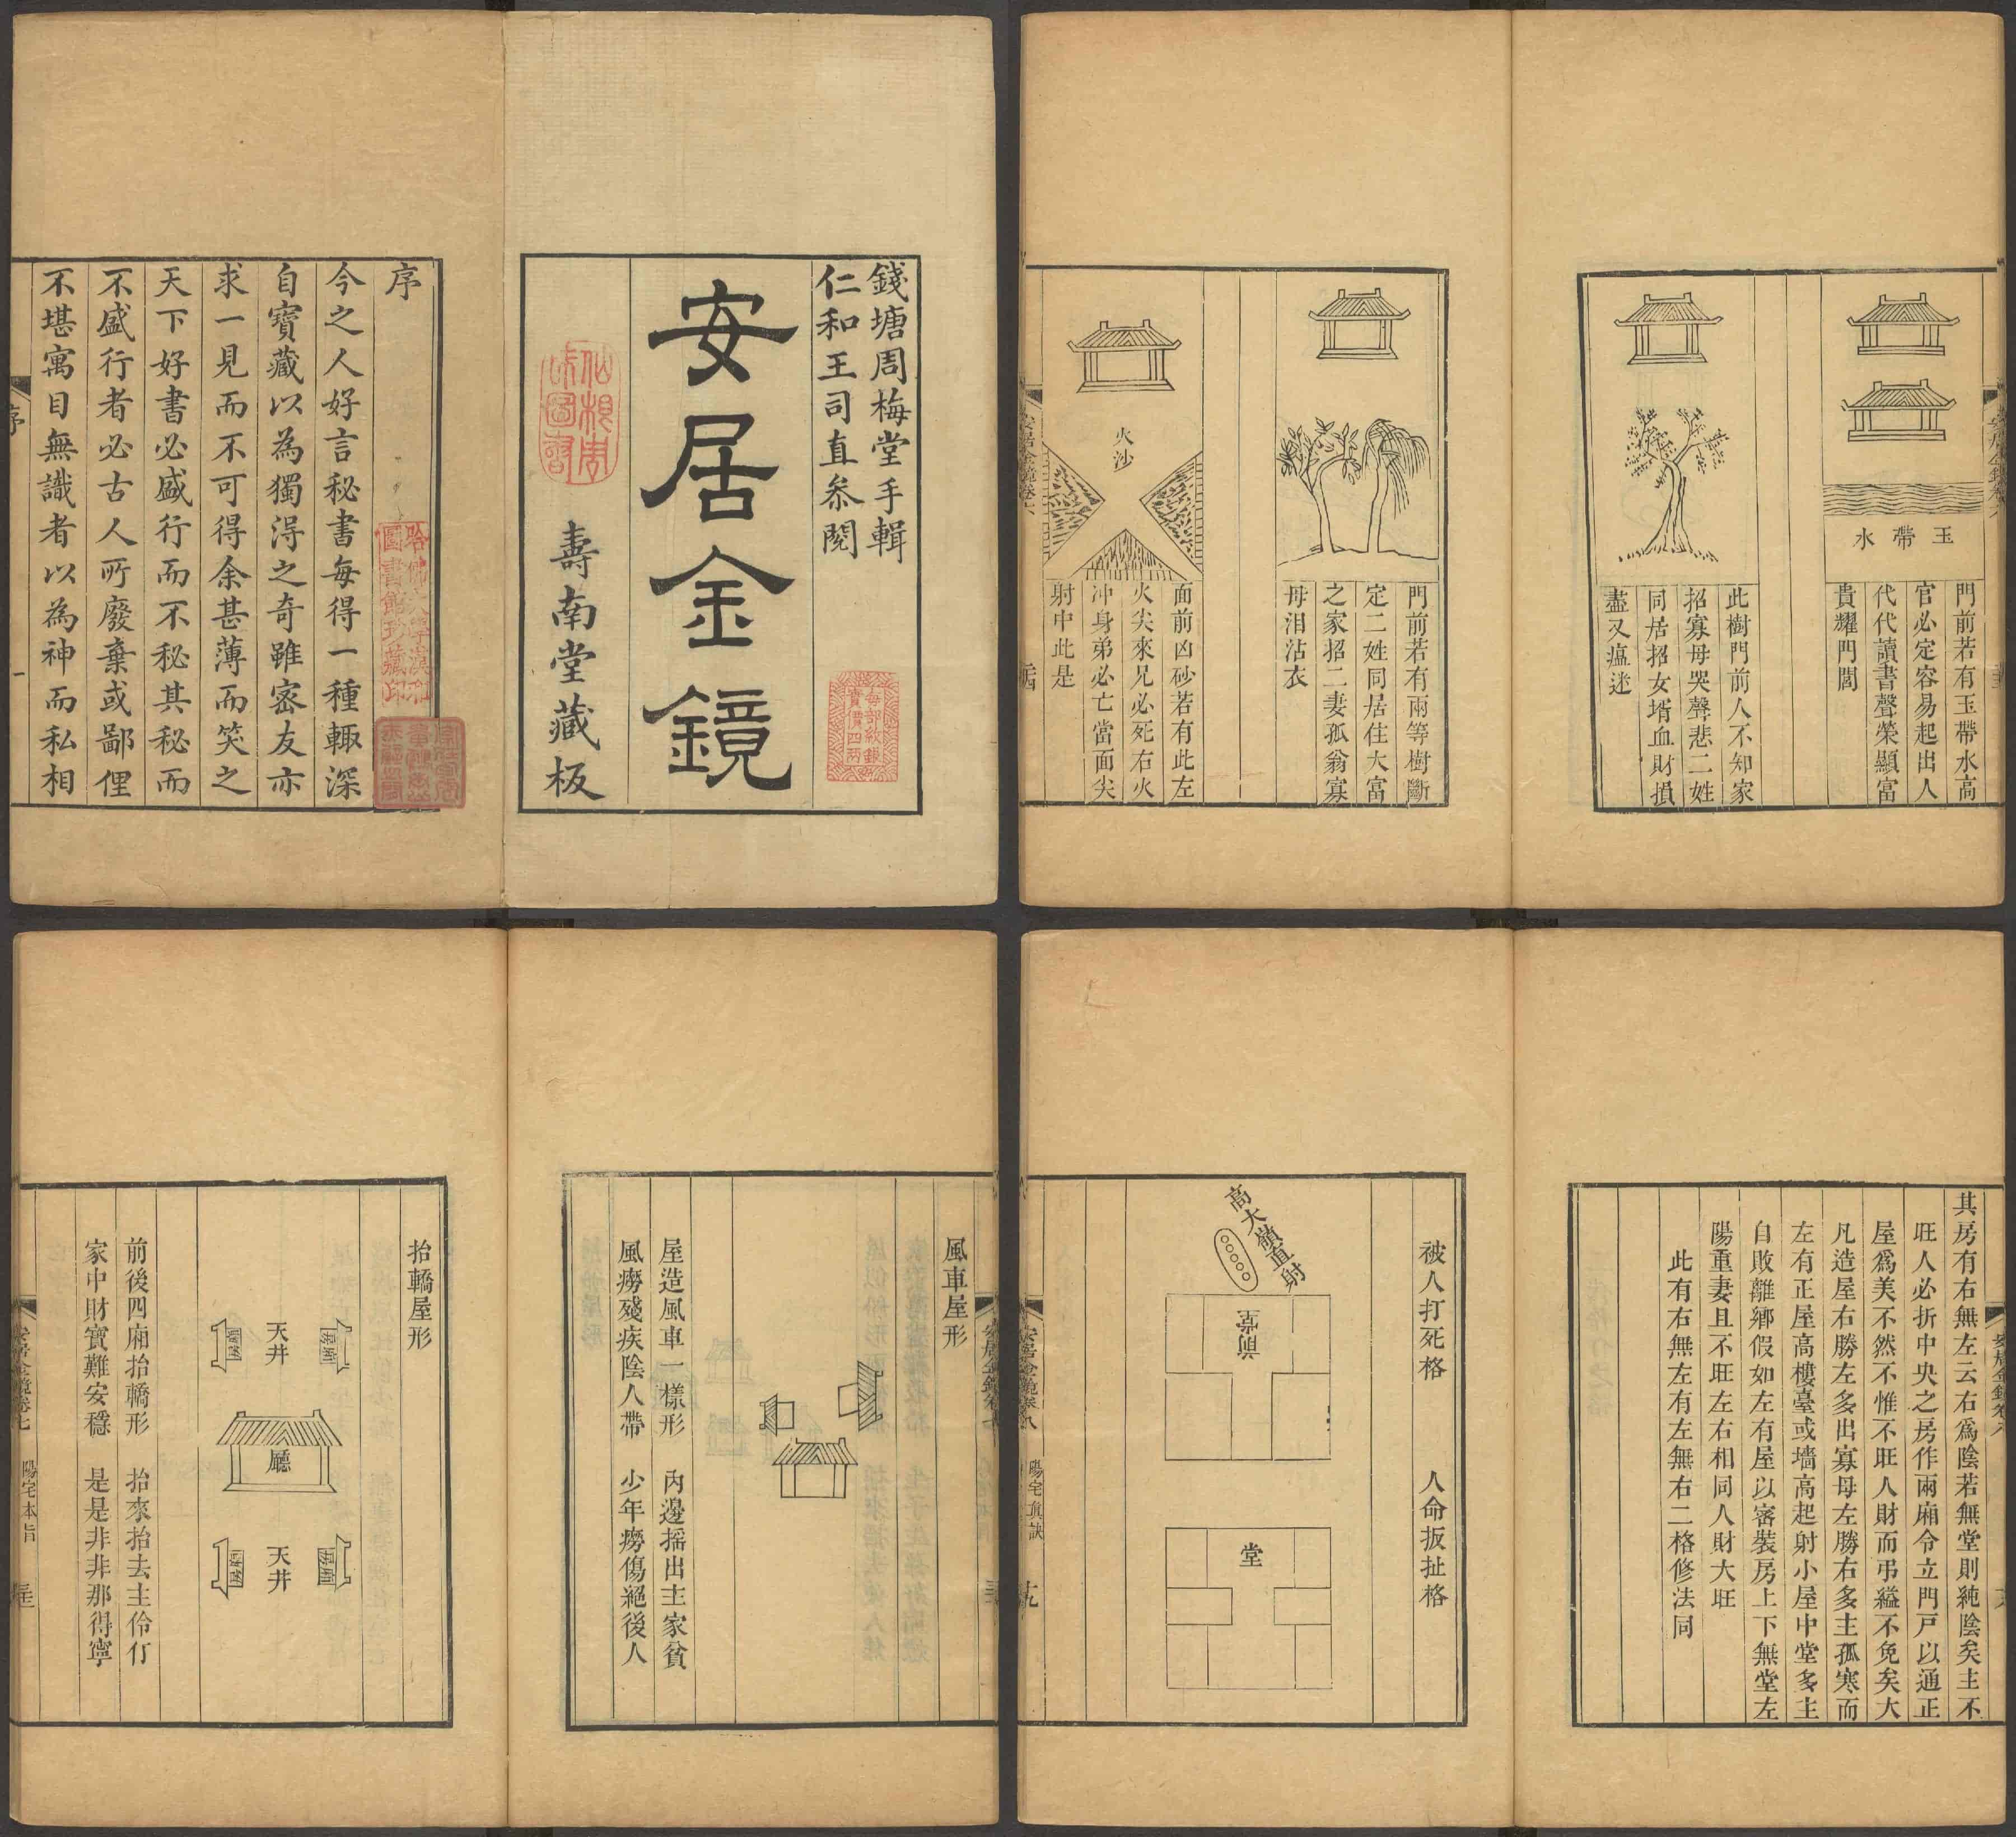 錢塘周梅堂手輯
仁和王司直叅閱
安居金鏡
壽南堂藏板
每部紋銀
實價四兩
序
今之人好言秘書每得一種輙深
自寶藏以為獨淂之奇雖密友亦
求一見而不可得余甚薄而笑之
天下好書必盛行而不秘其秘而
不盛行者必古人所廢棄或鄙俚
不堪寓目無識者以為神而私相
序
一
哈佛大學漢和
圖書館珍藏印
安居金鏡卷六
玉帶水
門前若有玉帶水高
官必定容易起出人
代代讀書聲榮顯富
貴耀門閭
此樹門前人不知家
招寡母哭聲悲二姓
同居招女壻血財損
盡又瘟迷
門前若有兩等樹斷
定二姓同居住大富
之家招二妻孤翁寡
母泪沾衣
火沙
面前凶砂若有此左
火尖來兄必死右火
冲身弟必亡當面尖
射中此是
安居金鏡卷六
風車屋形
屋造風車一樣形 丙邊摇出主家貧
風癆殘疾陰人帶 少年癆傷絕後人
抬轎屋形
天井
廳
天井
前後四廂抬轎形 抬來抬去主伶仃
家中財寳難安穩 是是非非那得寧
安居金鏡卷七
陽宅本旨
其房有右無左云右爲陰若無堂則純陰矣主不
旺人必折中央之房作兩廂令立門戸以通正
屋爲美不然不惟不旺人財而弔縊不免矣大
凡造屋右勝左多出寡母左勝右多主孤寒而
左有正屋高樓臺或墻高起射小屋中堂多主
自敗離鄉假如左有屋以審裝房上下無堂左
陽重妻且不旺左右相同人財大旺
此有右無左有左無右二格修法同
被人打死格 人命扳扯格
高大嶺直射
堂
安居金鏡卷八
陽宅真訣
十九